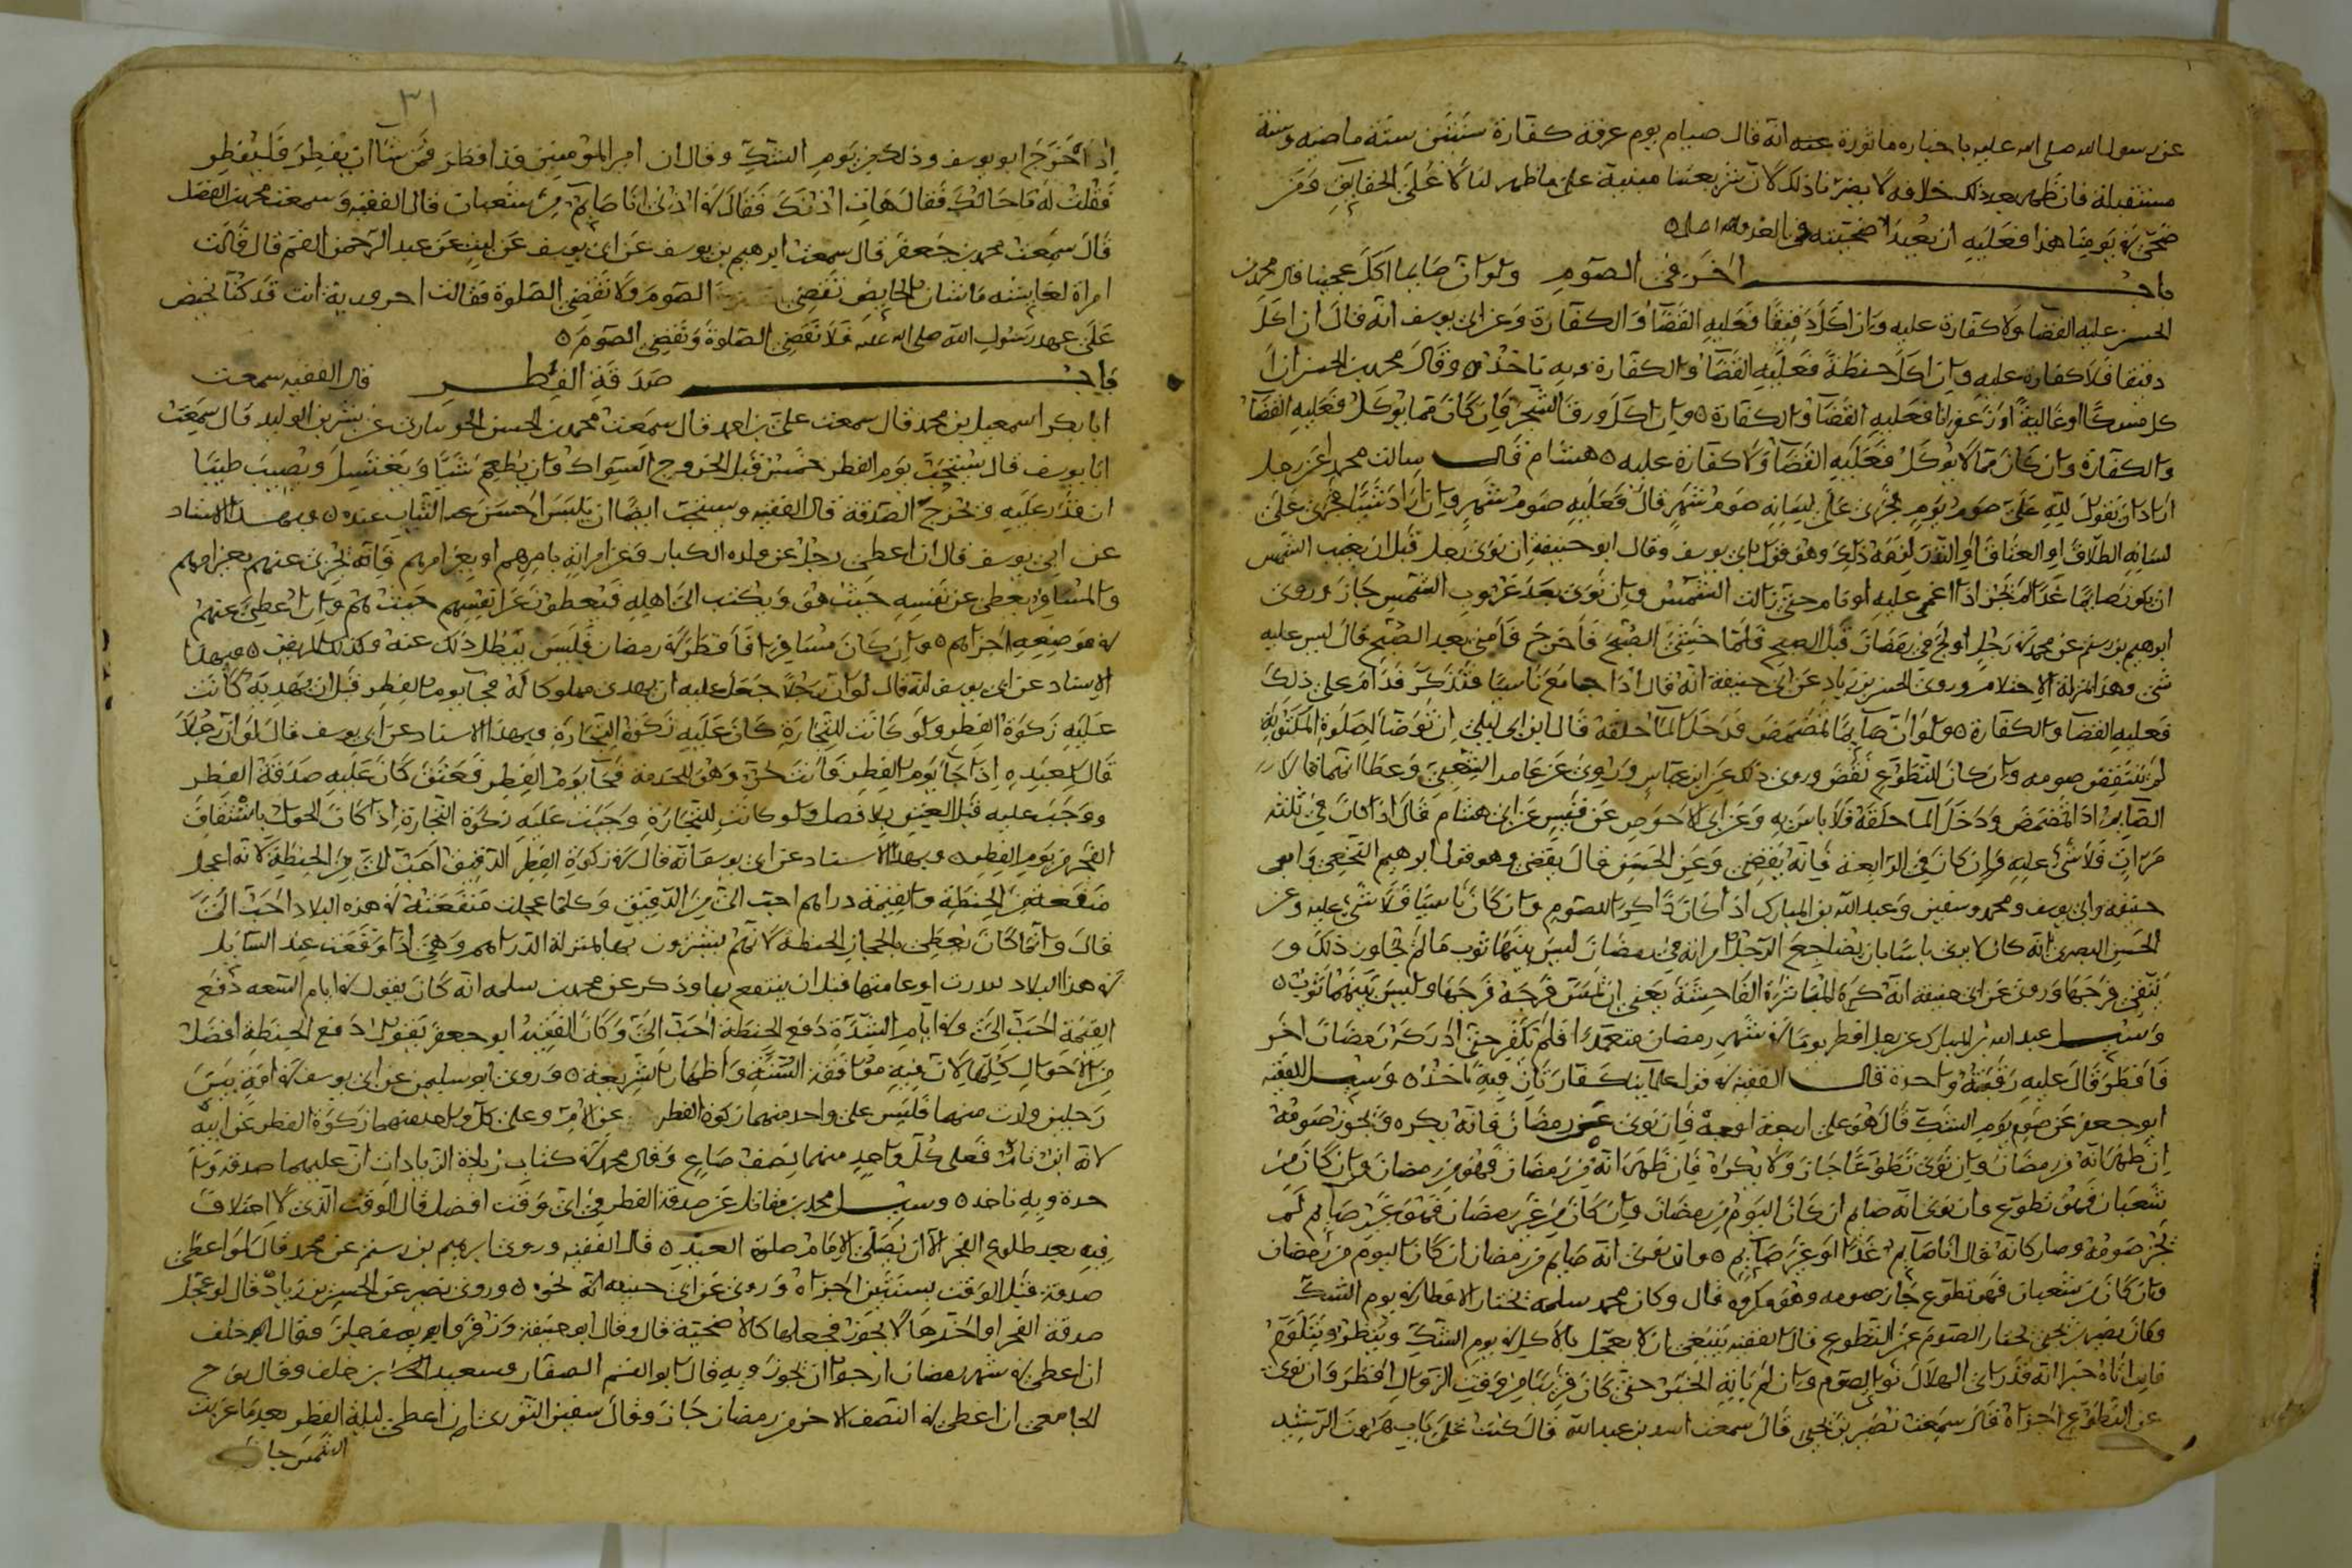 عن رسول الله صلى الله عليه باخباره ماثورة عنه انه قال صيام يوم عرفة كفارة سنتين سنة ماضية وسنة
مستقبلة فان ظهر بعد ذلك خلافه لا يضرنا ذلك لان شريعتنا مبنية على ما ظهر لنا لا على الحقايق ومن
ضحى في يومنا هذا فعليه ان يعيد اضحيته في الغد
باب اخر في الصوم ولو ان صايما اكل عجينا قال محمد بن
الحسن عليه القضا ولا كفارة عليه وان اكل دقيقا فعليه القضا والكفارة وعن ابي يوسف انه قال ان اكل
دقيقا فلا كفارة عليه وان اكل حنطة فعليه القضا والكفارة وبه ناخذ وقال محمد بن الحسن ان ا
كل مسكا او غالية او زعفرانا فعليه القضا والكفارة وان اكل ورق الشجر فان كان مما يوكل فعليه القضا
والكفارة وان كان مما لا يوكل فعليه القضا ولا كفارة عليه هشام قال سالت محمدا عن رجل
اراد ان يقول لله على صوم يوم فجرى على لسانه صوم شهر قال فعليه صوم شهر وان اراد شيا فجرى على
لسانه الطلاق او العتاق او النذر لزمه ذلك وهو قول ابي يوسف وقال ابو حنيفة ان نوى رجل قبل ان يغيب الشمس
ان يكون صايما غدا لم يجز اذا اغمي عليه او نام حتى زالت الشمس وان نوى بعد غروب الشمس جاز وروى
ابرهيم بن رستم عن محمد في رجل اولج في رمضان قبل الصبح فلما خشي الصبح فاخرج فامنى بعد الصبح قال ليس عليه
شي وهذا بمنزلة الاحتلام وروى الحسن بن زياد عن ابي حنيفة انه قال اذا جامع ناسيا فتذكر فدام على ذلك
فعليه القضا والكفارة ولو ان صايما تمضمض فدخل الما حلقه قال ابن ابي ليلى ان توضا لصلوة المكتوبة
لم ينتقض صومه وان كان للتطوع نقض وروى ذلك عن ابن عباس وروى عن عامر الشعبي وعطا انهما قالا في
الصايم اذا تمضمض ودخل الما حلقه فلا باس به وعن ابي الاحوص عن قيس عن ابن هشام قال اذا كان في ثلاث
مرات فلا شي عليه وان كان في الرابعة فانه يقضي وعن الحسن قال يقضي وهو قول ابرهيم النخعي وابي
حنيفة وابي يوسف ومحمد وسفين وعبد الله بن المبارك اذا كان ذاكرا للصوم وان كان ناسيا فلا شي عليه وعن
الحسن البصري انه كان لا يرى باسا بان يضاجع الرجل امراته في رمضان ليس بينهما ثوب ما لم يجاوز ذلك و
يتقي فرجها وروى عن ابي حنيفة انه كره المباشرة الفاحشة يعني ان يمس فرجه فرجها وليس بينهما ثوب
وسيل عبد الله بن المبارك عن رجل افطر يوما في شهر رمضان متعمدا فلم يكفر حتى ادركه رمضان اخر
فافطر قال عليه رقبة واحدة قال الفقيه في قول علماينا كفارتان وبه ناخذ وسيل الفقيه
ابو جعفر عن صوم يوم الشك قال هو على اربعة اوجه فان نوى عن رمضان فانه يكره ويجوز صومه
ان ظهر انه من رمضان وان نوى تطوعا جاز ولا يكره فان ظهر انه من رمضان فهو من رمضان وان كان من
شعبان فهو تطوع وان نوى انه صايم ان كان اليوم من رمضان وان كان من غير رمضان فهو غير صايم لم
يجز صومه وصار كانه قال انا صايم غدا او غير صايم وان نوى انه صايم من رمضان ان كان اليوم من رمضان
وان كان من شعبان فهو تطوع جاز صومه وهو مكروه قال وكان محمد بن سلمة يختار الافطار في يوم الشك
وكان نصير بن يحيى يختار الصوم عن التطوع قال الفقيه ينبغي ان لا يعجل بالاكل في يوم الشك وينظر ويتلوم
فان اتاه خبر انه قد راي الهلال نوى الصوم وان لم ياته الخبر حتى كان قريبا من وقت الزوال افطر وان نوى
عن التطوع اجزاه قال سمعت نصير بن يحيى قال سمعت اسد بن عبد الله قال كنت على باب هرون الرشيد
٣١
اذا خرج ابو يوسف وذلك من يوم الشك وقال ان امير المومنين قد افطر فمن شا ان يفطر فليفطر
فقلت له ما حالك فقال هات اذنك فقال في اذني انا صايم من شعبان قال الفقيه وسمعت محمد بن الفضل
قال سمعت محمد بن جعفر قال سمعت ابرهيم بن يوسف عن ابي يوسف عن ليث عن عبد الرحمن القسم قال قالت
امراة لعايشة ما شان الحايض تقضي الصوم ولا تقضي الصلوة فقالت احرورية انت قد كنا نحيض
على عهد رسول الله صلى الله عليه فلا نقضي الصلوة ونقضي الصوم
باب صدقة الفطر قال الفقيه سمعت
ابا بكر اسمعيل بن محمد قال سمعت علي بن احمد قال سمعت محمد بن الحسن عن بشر بن الوليد قال سمعت
ابا يوسف قال يستحب يوم الفطر خمس قبل الخروج السواك وان يطعم شيا ويغتسل ويصيب طيبا
ان قدر عليه ويخرج الصدقة قال الفقيه ويستحب ايضا ان يلبس احسن الثياب عنده وبهذا الاسناد
عن ابي يوسف قال ان اعطى رجل عن ولده الكبار وعن امراته بامرهم او بغير امرهم فانه يجزي عنهم بغير امرهم
والمسافر يعطي عن نفسه حيث هو ويكتب الى اهله فيعطون عن انفسهم حيث هم وان اعطى عنهم
في موضعه اجزاهم وان كان مسافرا فافطر في رمضان فليس يبطل ذلك عنه وكذلك المريض وبهذا
الاسناد عن ابي يوسف انه قال لو ان رجلا جعل عليه ان يهدي مملوكا له فجا يوم الفطر قبل ان يهديه كانت
عليه زكوة الفطر ولو كانت للتجارة كان عليه زكوة التجارة وبهذا الاسناد عن ابي يوسف قال لو ان رجلا
قال لعبده اذا جا يوم الفطر فانت حر وهو للخدمة فجا يوم الفطر فعتق كان عليه صدقة الفطر
ووجب عليه قبل العتق بلا فصل ولو كانت للتجارة وجبت عليه زكوة التجارة اذا كان الحول
الفجر من يوم الفطر وبهذا الاسناد عن ابي يوسف انه قال في زكوة الفطر الدقيق احب الي من الحنطة لانه اعجل
منفعة من الحنطة والقيمة دراهم احب الي من الدقيق وكلما عجلت منفعته في هذه البلاد احب الي
قال وانما كان يعطي بالحجاز الحنطة لانهم يشترون بها بمنزلة الدراهم وهي اذا وقعت عند السايل
في هذا البلاد قبل ان ينتفع بها وذكر عن محمد بن سلمة انه كان يقول في ايام السعة دفع
القيمة احب الي وفي ايام الشدة دفع الحنطة احب الي وكان الفقيه ابو جعفر يقول دفع الحنطة افضل
من الاحوال كلها لان فيه موافقة السنة واظهار الشريعة وروى ابو سليمن عن ابي يوسف في امة بين
رجلين ولدت منهما فليس على واحد منهما زكوة الفطر عن الام وعلى كل واحد منهما زكوة الفطر عن ابنه
لانه ابن تام فعلى كل واحد منهما نصف صاع وقال محمد في كتاب زيادة الزيادات ان عليهما صدقة وا
حدة وبه ناخذ وسيل محمد بن مقاتل عن صدقة الفطر في اي وقت افضل قال الوقت الذي لا اختلاف
فيه بعد طلوع الفجر الى ان يصلي الامام صلوة العيد قال الفقيه وروى ابرهيم بن رستم عن محمد قال لو اعطى
صدقة قبل الوقت بسنتين اجزاه وروى عن ابي حنيفة انه نحوه وروى نصير عن الحسن بن زياد قال لو عجل
صدقة الفجر او اخرها لا يجوز فجعلها كالاضحية قال وقال ابو حنيفة وزفر وابو يوسف جايز وقال خلف
ان اعطى في شهر رمضان ارجوا ان يجوز وبه قال ابو القسم الصفار وسعيد بن خلف وقال نوح
الجامعي ان اعطى في النصف الاخر من رمضان جاز وقال سفين الثوري ان اعطى ليلة الفطر بعد ما غربت
الشمس جاز